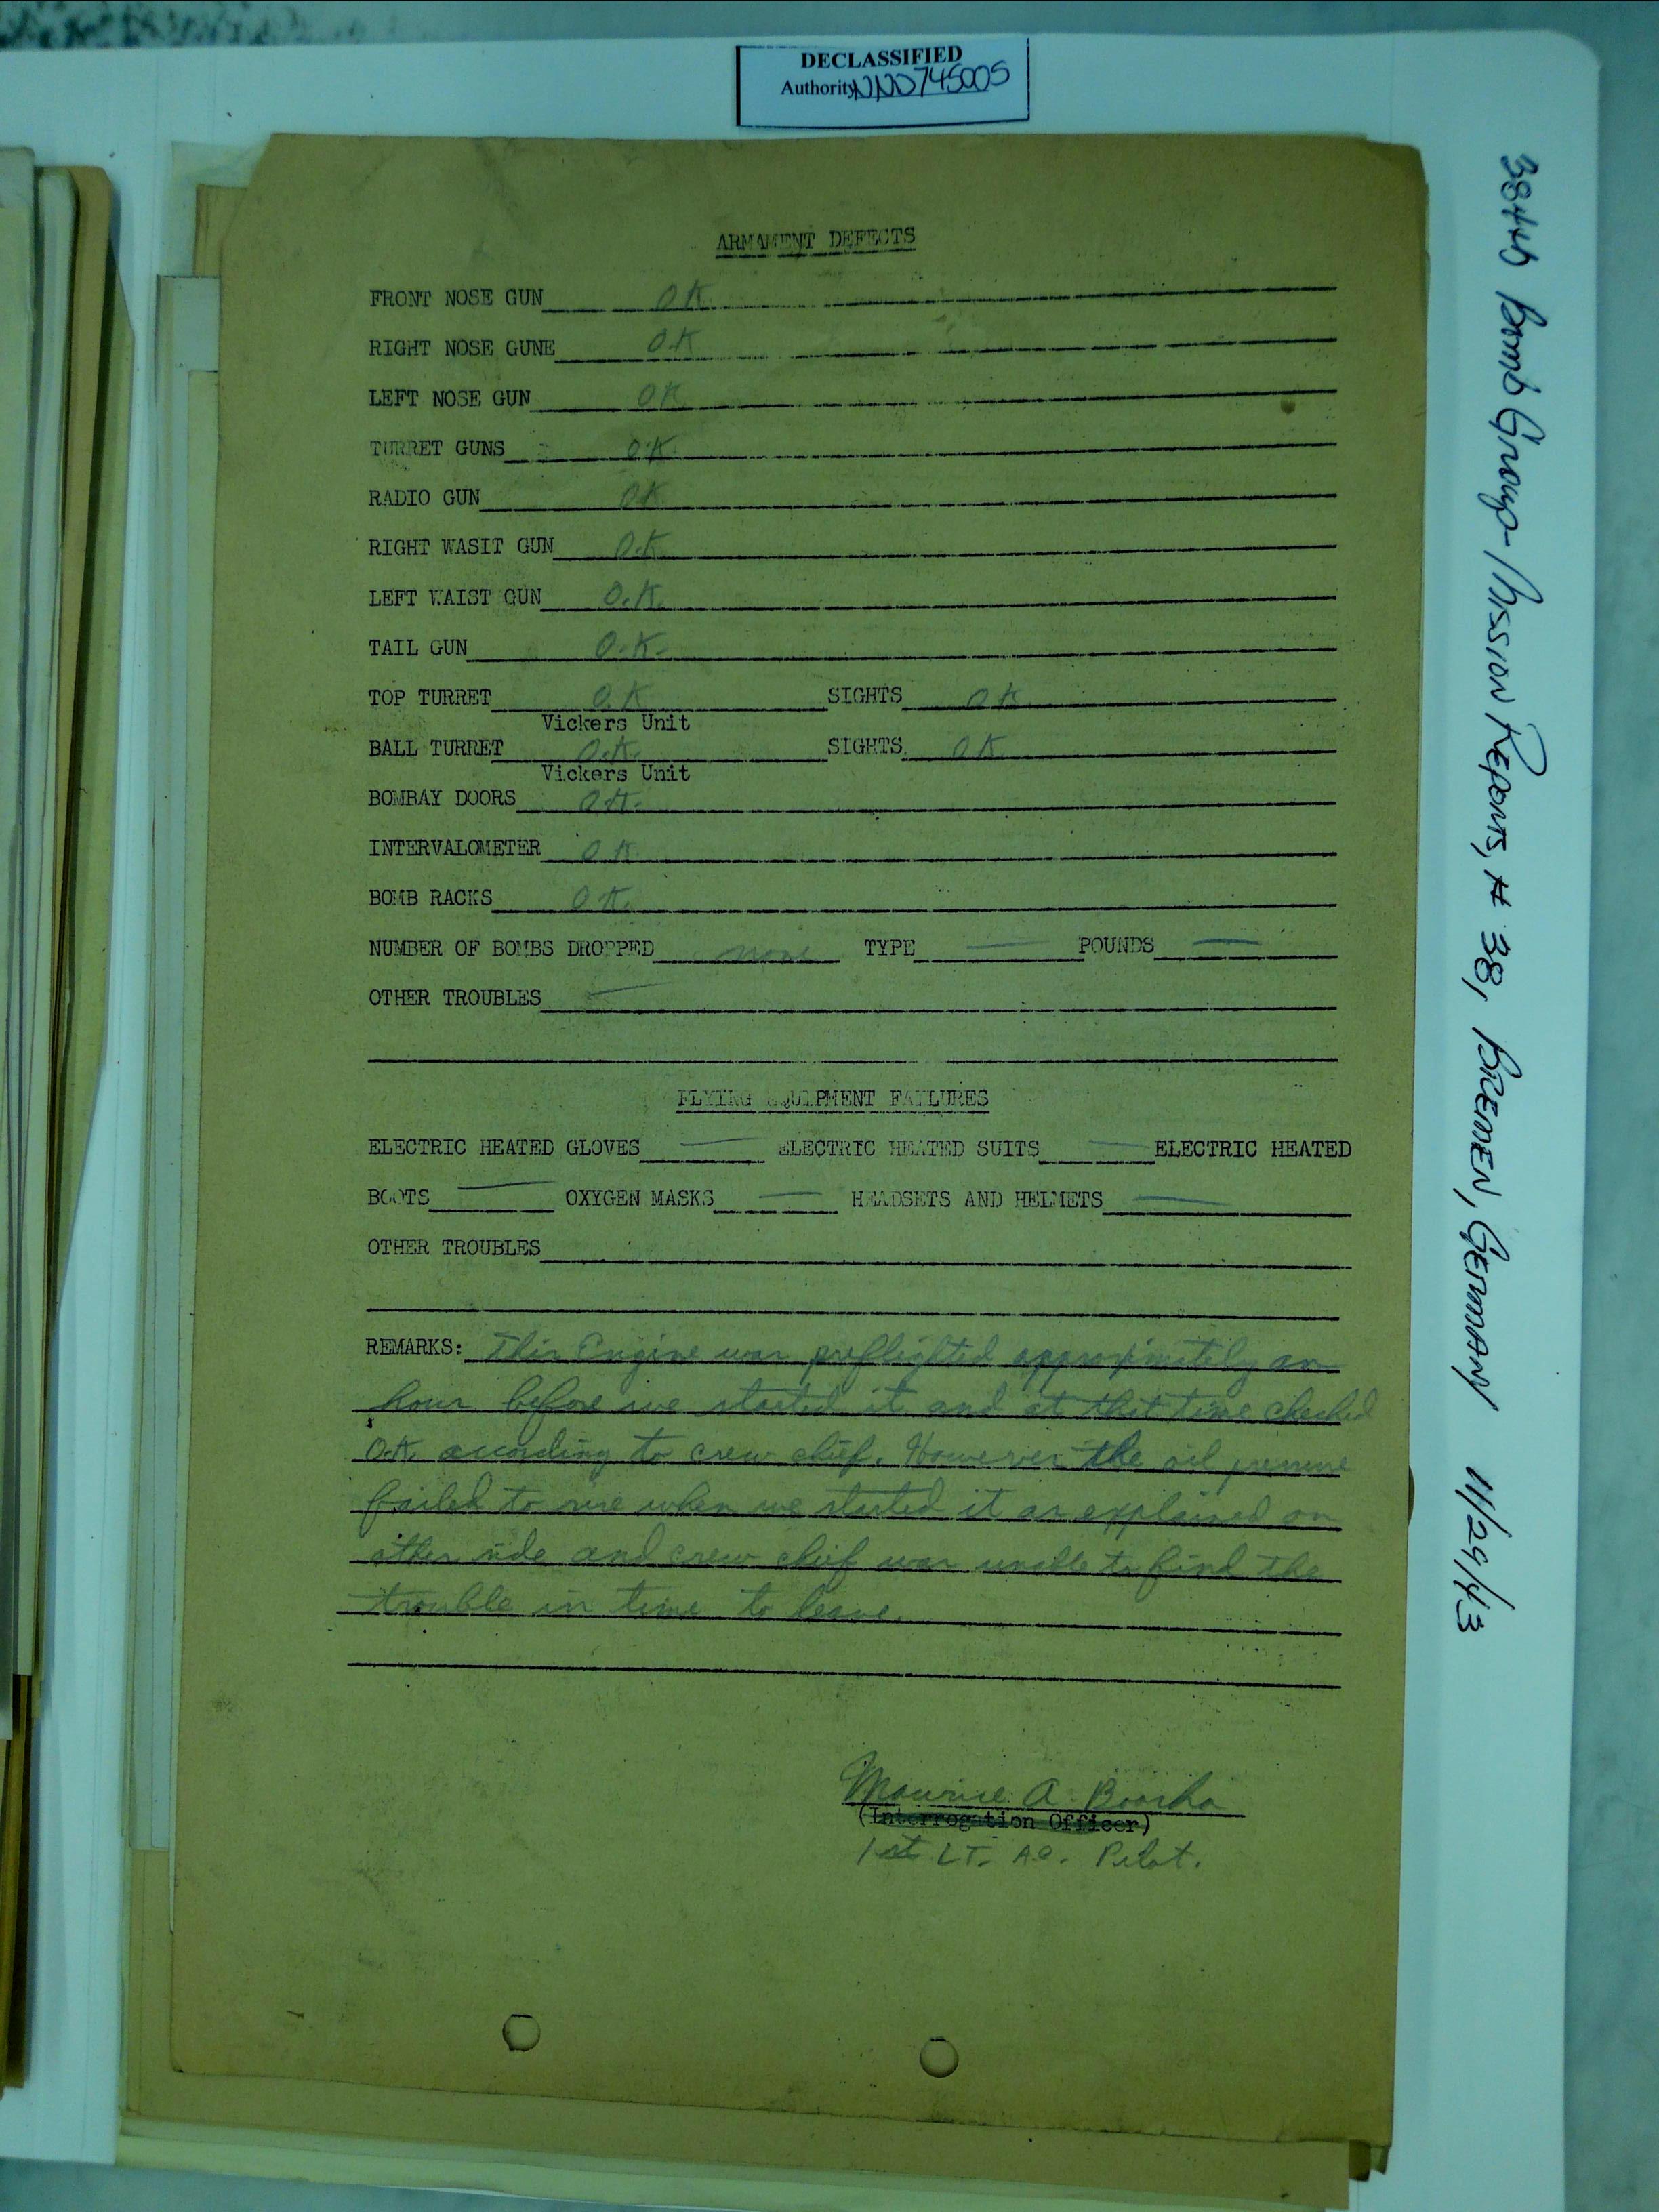 DECLASSIFIED
Authority NND745005
ARMAMENT DEFECTS
FRONT NOSE GUN OK
RIGHT NOSE GUNE O.K
LEFT NOSE GUN OK
TURRET GUNS O.K.
RADIO GUN OK
RIGHT WASIT GUN O.K.
LEFT WAIST GUN O.K.
TAIL GUN O.K.
TOP TURRET O.K SIGHTS OK
Vickers Unit
BALL TURRET O.K. SIGHTS OK
Vickers Unit
BOMBAY DOORS O.K.
INTERVALOMETER O.K.
BOMB RACKS O.K.
NUMBER OF BOMBS DROPPED none TYPE — POUNDS —
OTHER TROUBLES —
FLYING EQUIPMENT FAILURES
ELECTRIC HEATED GLOVES — ELECTRIC HEATED SUITS — ELECTRIC HEATED
BOOTS — OXYGEN MASKS — HEADSETS AND HELMETS —
OTHER TROUBLES
REMARKS: This Engine was preflighted approximately an
hour before we started it and at that time checked
O.K. according to crew chief. However the oil pressure
failed to rise when we started it as explained on
other side and crew chief was unable to find the
trouble in time to leave.
Maurice A.
(Interrogation Officer)
1st LT. A.C. Pilot.
384th Bomb Group - Mission Reports, # 38, BREMEN, GERMANY 11/29/43